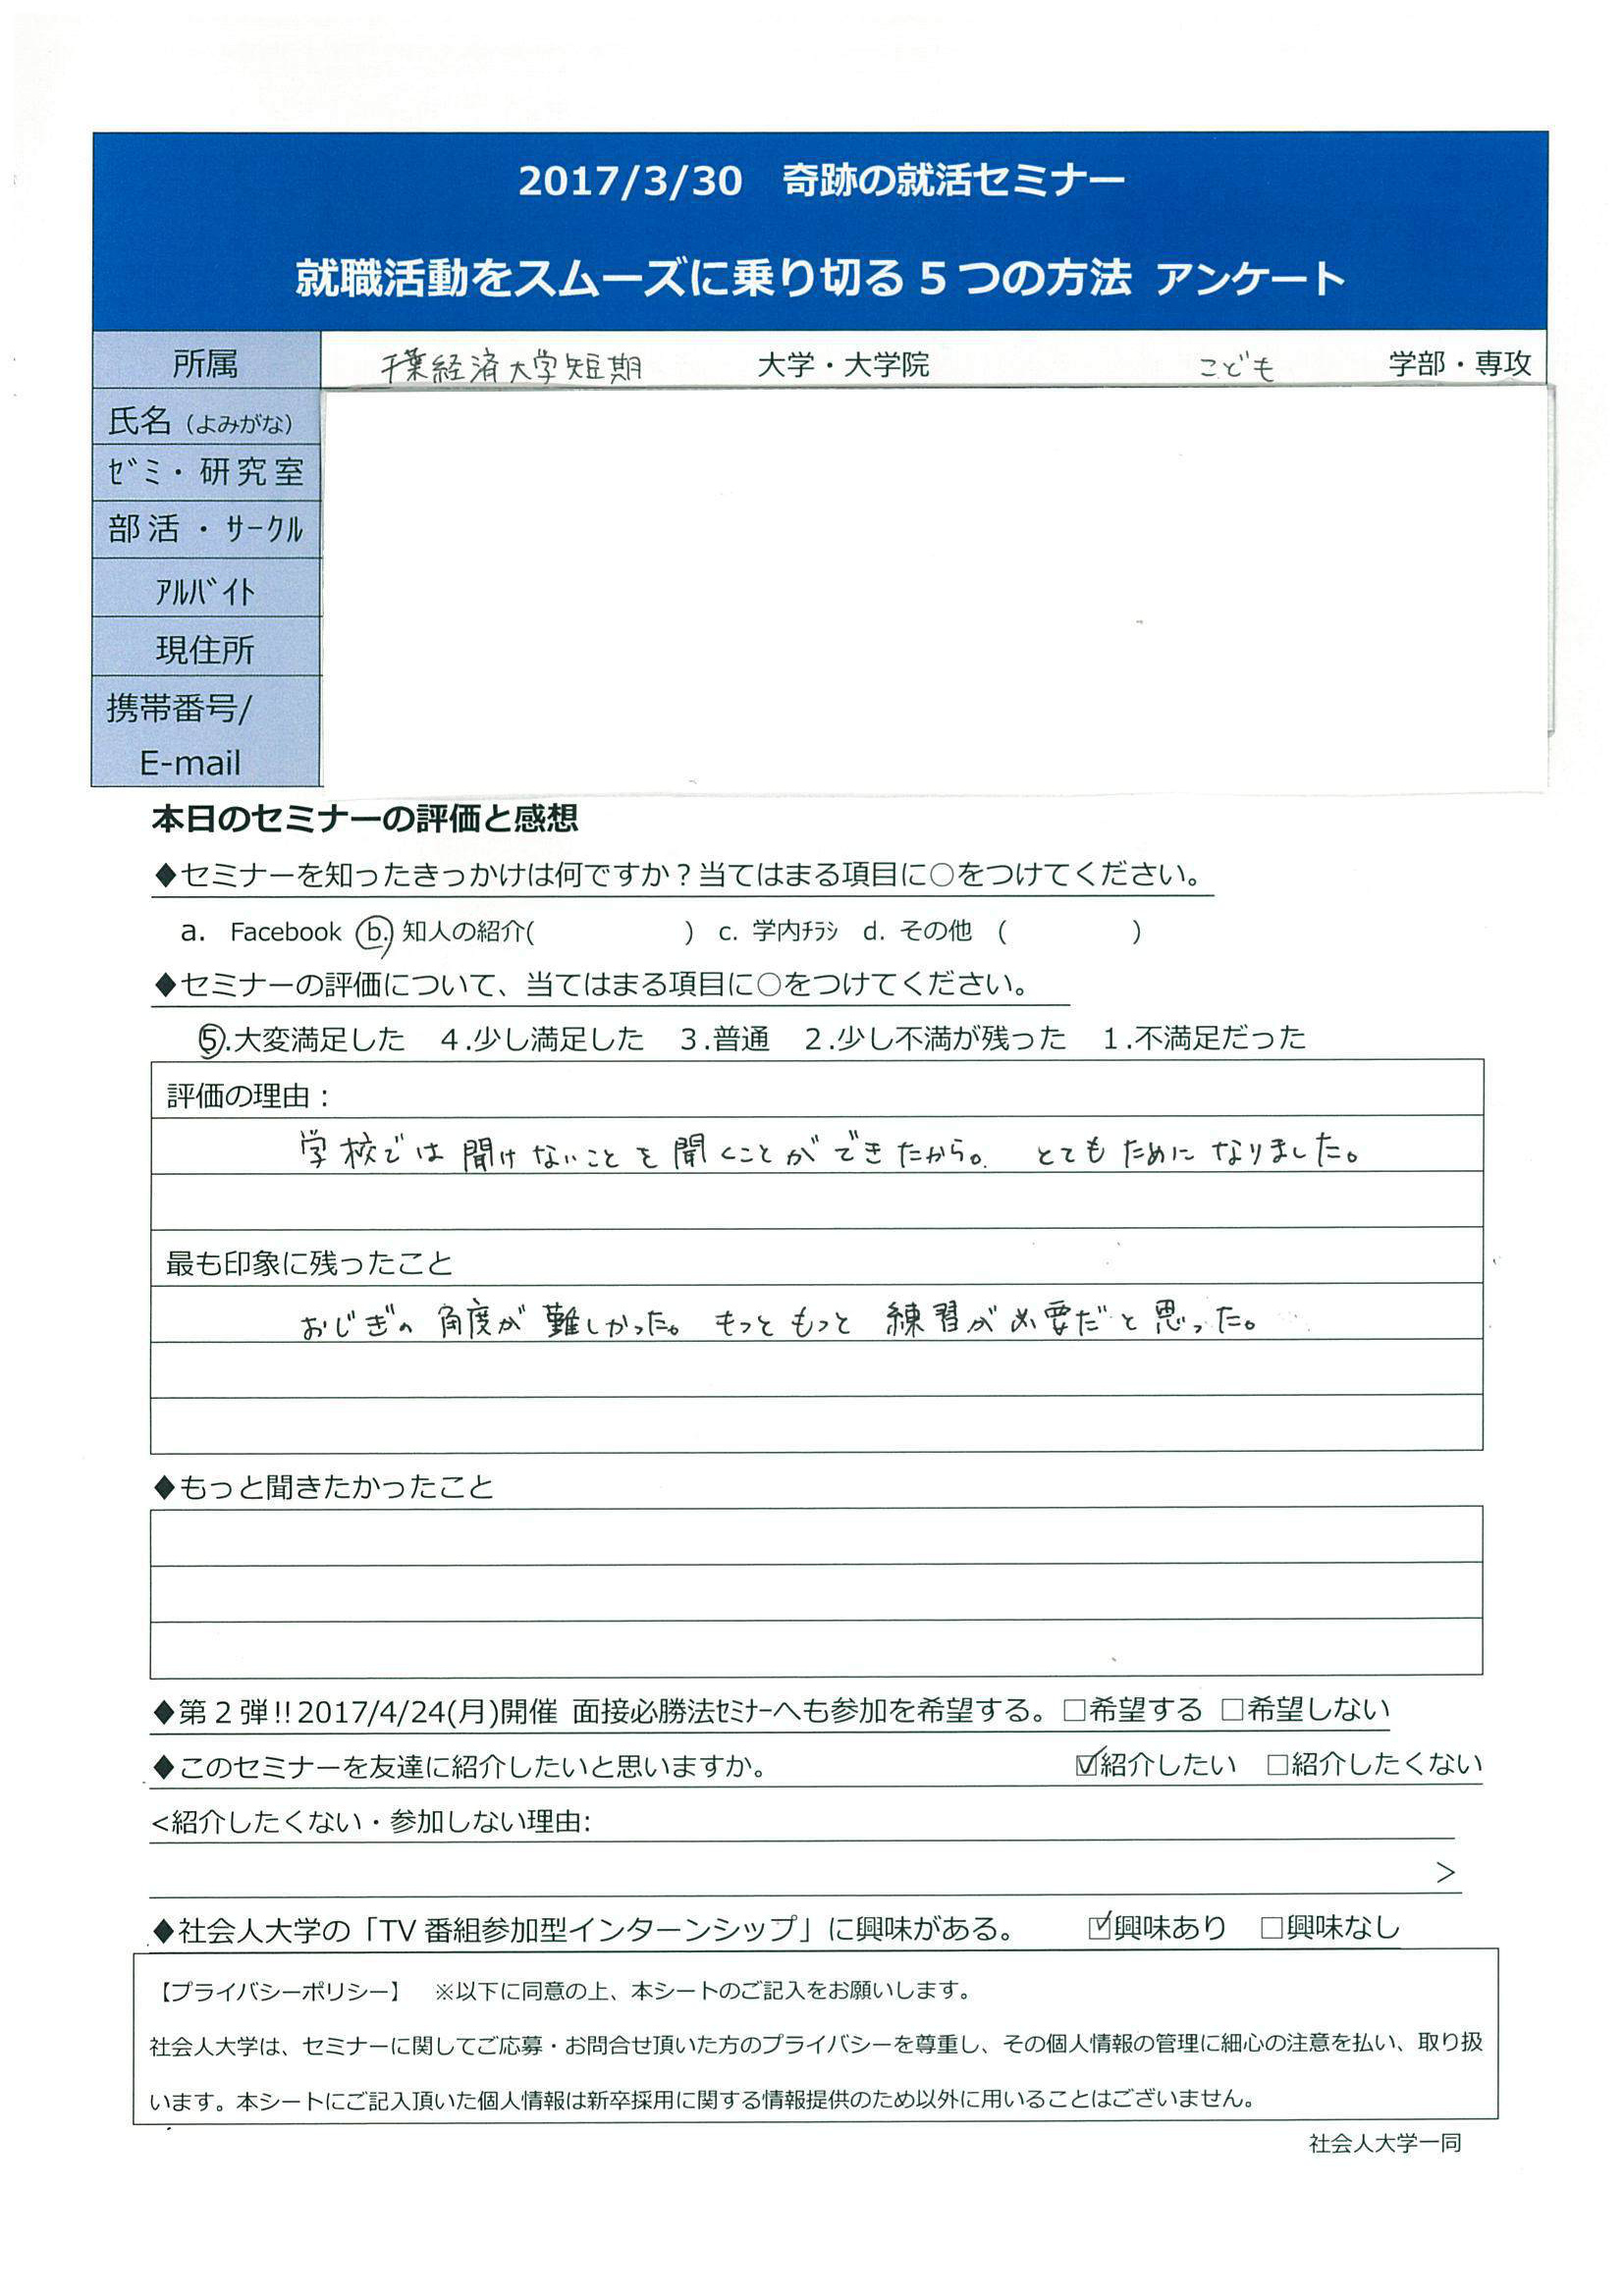 2017/3/30　奇跡の就活セミナー
就職活動をスムーズに乗り切る５つの方法 アンケート
所属 千葉経済大学短期 大学・大学院 こども 学部・専攻
氏名（よみがな）
ｾﾞﾐ・研究室
部活・ｻｰｸﾙ
ｱﾙﾊﾞｲﾄ
現住所
携帯番号/
E-mail
本日のセミナーの評価と感想
◆セミナーを知ったきっかけは何ですか？当てはまる項目に○をつけてください。
a. Facebook b. 知人の紹介(　　　　　) c. 学内ﾁﾗｼ d. その他 (　　　　　)
◆セミナーの評価について、当てはまる項目に○をつけてください。
5.大変満足した　４.少し満足した　３.普通　２.少し不満が残った　１.不満足だった
評価の理由：
学校では聞けないことを聞くことができたから。 とてもためになりました。
最も印象に残ったこと
おじぎの角度が難しかった。もっともっと練習が必要だと思った。
◆もっと聞きたかったこと
◆第２弾!!2017/4/24(月)開催 面接必勝法ｾﾐﾅｰへも参加を希望する。□希望する □希望しない
◆このセミナーを友達に紹介したいと思いますか。 ☑紹介したい □紹介したくない
<紹介したくない・参加しない理由:
>
◆社会人大学の「TV 番組参加型インターンシップ」に興味がある。 ☑興味あり □興味なし
【プライバシーポリシー】　※以下に同意の上、本シートのご記入をお願いします。
社会人大学は、セミナーに関してご応募・お問合せ頂いた方のプライバシーを尊重し、その個人情報の管理に細心の注意を払い、取り扱
います。本シートにご記入頂いた個人情報は新卒採用に関する情報提供のため以外に用いることはございません。
社会人大学一同